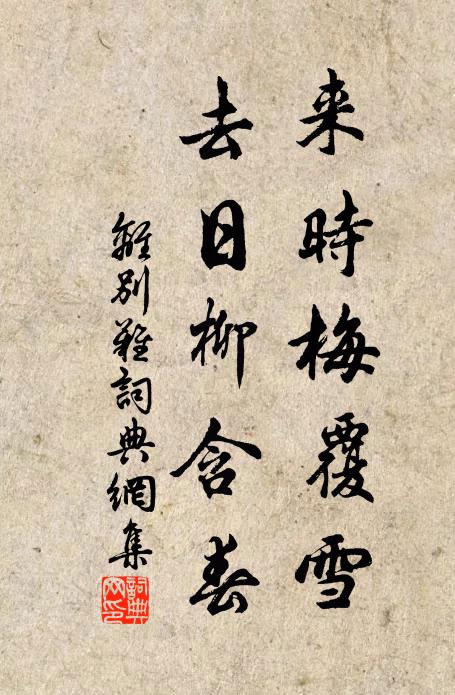 来時梅覆雪
去日柳含春
離別難詞典網集
詞典
网印